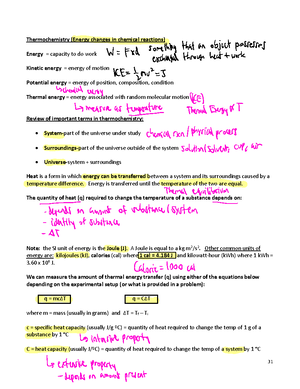 Thermochemistry (Energy changes in chemical reactions)
Energy – capacity to do work W = F×d something that an object possesses
exchanged through heat + work
Kinetic energy = energy of motion KE = ½mv² = J
Potential energy = energy of position, composition, condition
↳ chemical energy
Thermal energy = energy associated with random molecular motion (KE)
↳ measure as temperature Thermal Energy ∝ T
Review of important terms in thermochemistry:
• System-part of the universe under study chemical rxn / physical process
• Surroundings-part of the universe outside of the system solution/solvents, cup, air
• Universe-system + surroundings
Heat is a form in which energy can be transferred between a system and its surroundings caused by a
temperature difference. Energy is transferred until the temperature of the two are equal.
Thermal equilibrium
The quantity of heat (q) required to change the temperature of a substance depends on:
- depends on amount of substance/system
- identity of substance
- ΔT
Note: the SI unit of energy is the Joule (J). A Joule is equal to a kg m²/s². Other common units of
energy are: kilojoules (kJ), calories (cal) where 1 cal = 4.184 J and kilowatt-hour (kWh) where 1 kWh =
3.60 x 10⁶ J. Calorie = 1000 cal
We can measure the amount of thermal energy transfer (q) using either of the equations below
depending on the experimental setup (or what is provided in a problem):
q = mcΔT q = CΔT
where m = mass (usually in grams) and ΔT = Tf – Ti.
c = specific heat capacity (usually J/g °C) = quantity of heat required to change the temp of 1 g of a
substance by 1 °C
↳ intensive property
C = heat capacity (usually J/°C) = quantity of heat required to change the temp of a system by 1 °C
↳ extensive property
- depends on amount present
31